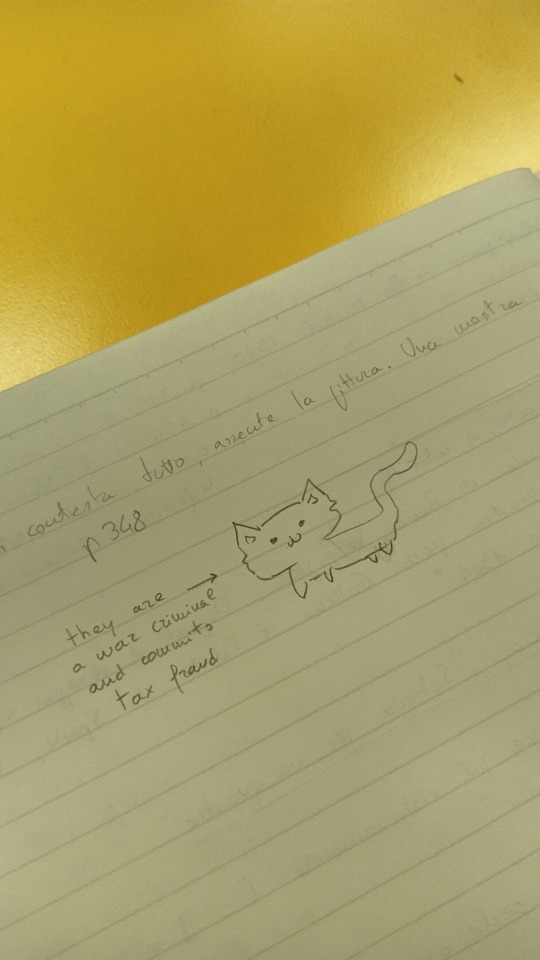 contesta tutto, assente la pittura. Una mostra
p 348
they are →
a war criminal
and commits
tax fraud